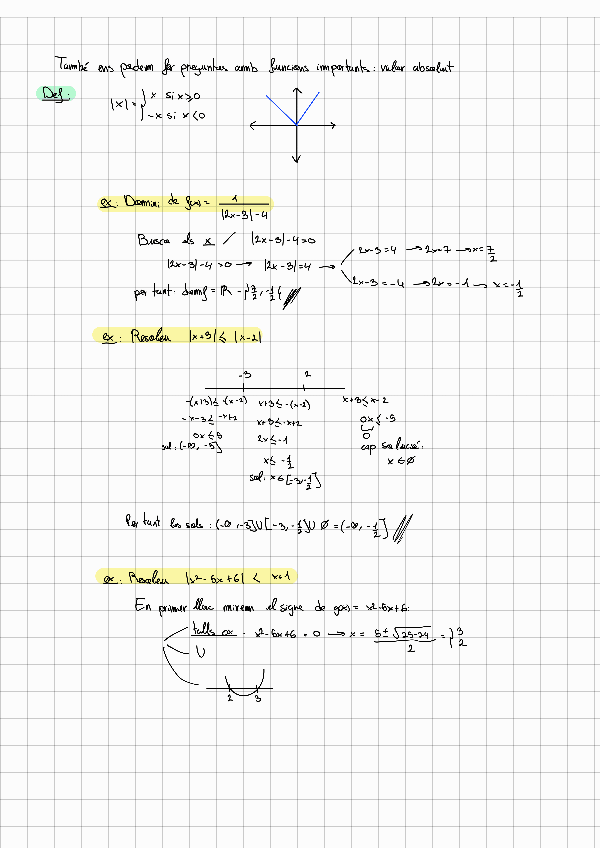 També ens podem fer preguntes amb funcions importants: valor absolut
Def:
|x| = { x si x≥0
-x si x<0
ex: Domini de f(x) = 1/(|2x-3|-4)
Busca els x / |2x-3|-4=0
|2x-3|-4=0 → |2x-3|=4 →
2x-3=4 → 2x=7 → x=7/2
2x-3=-4 → 2x=-1 → x=-1/2
per tant: domf = ℝ - {7/2, -1/2}
ex: Resoleu |x+3| ≤ |x-2|
-3 2
-(x+3) ≤ -(x-2) x+3 ≤ -(x-2) x+3 ≤ x-2
-x-3 ≤ -x+2 x+3 ≤ -x+2 0x ≤ -5
0x ≤ 5 2x ≤ -1 0
sol: (-∞, -3] x ≤ -1/2 cap solució:
sol: x∈[-3, -1/2] x∈∅
Per tant les sols: (-∞, -3] ∪ [-3, -1/2] ∪ ∅ = (-∞, -1/2]
ex: Resoleu |x²-5x+6| < x+1
En primer lloc mirem el signe de g(x) = x²-5x+6:
talls ox: x²-5x+6 = 0 → x = (5±√(25-24))/2 = { 3
2
∪
2 3